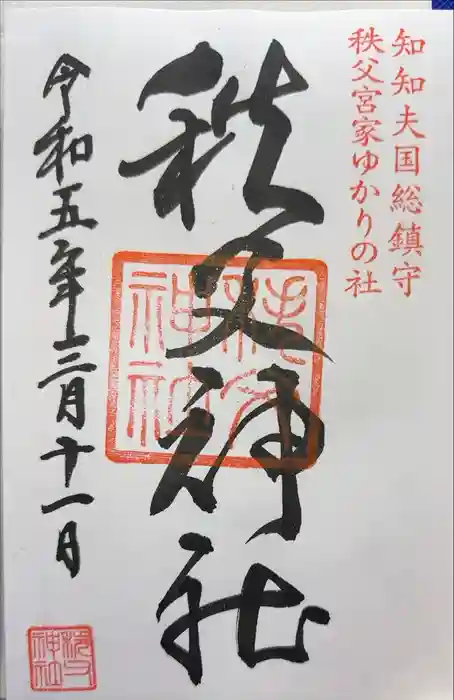 知知夫国総鎮守
秩父宮家ゆかりの社
秩父神社
秩父神社
令和五年三月十一日
秩父神社